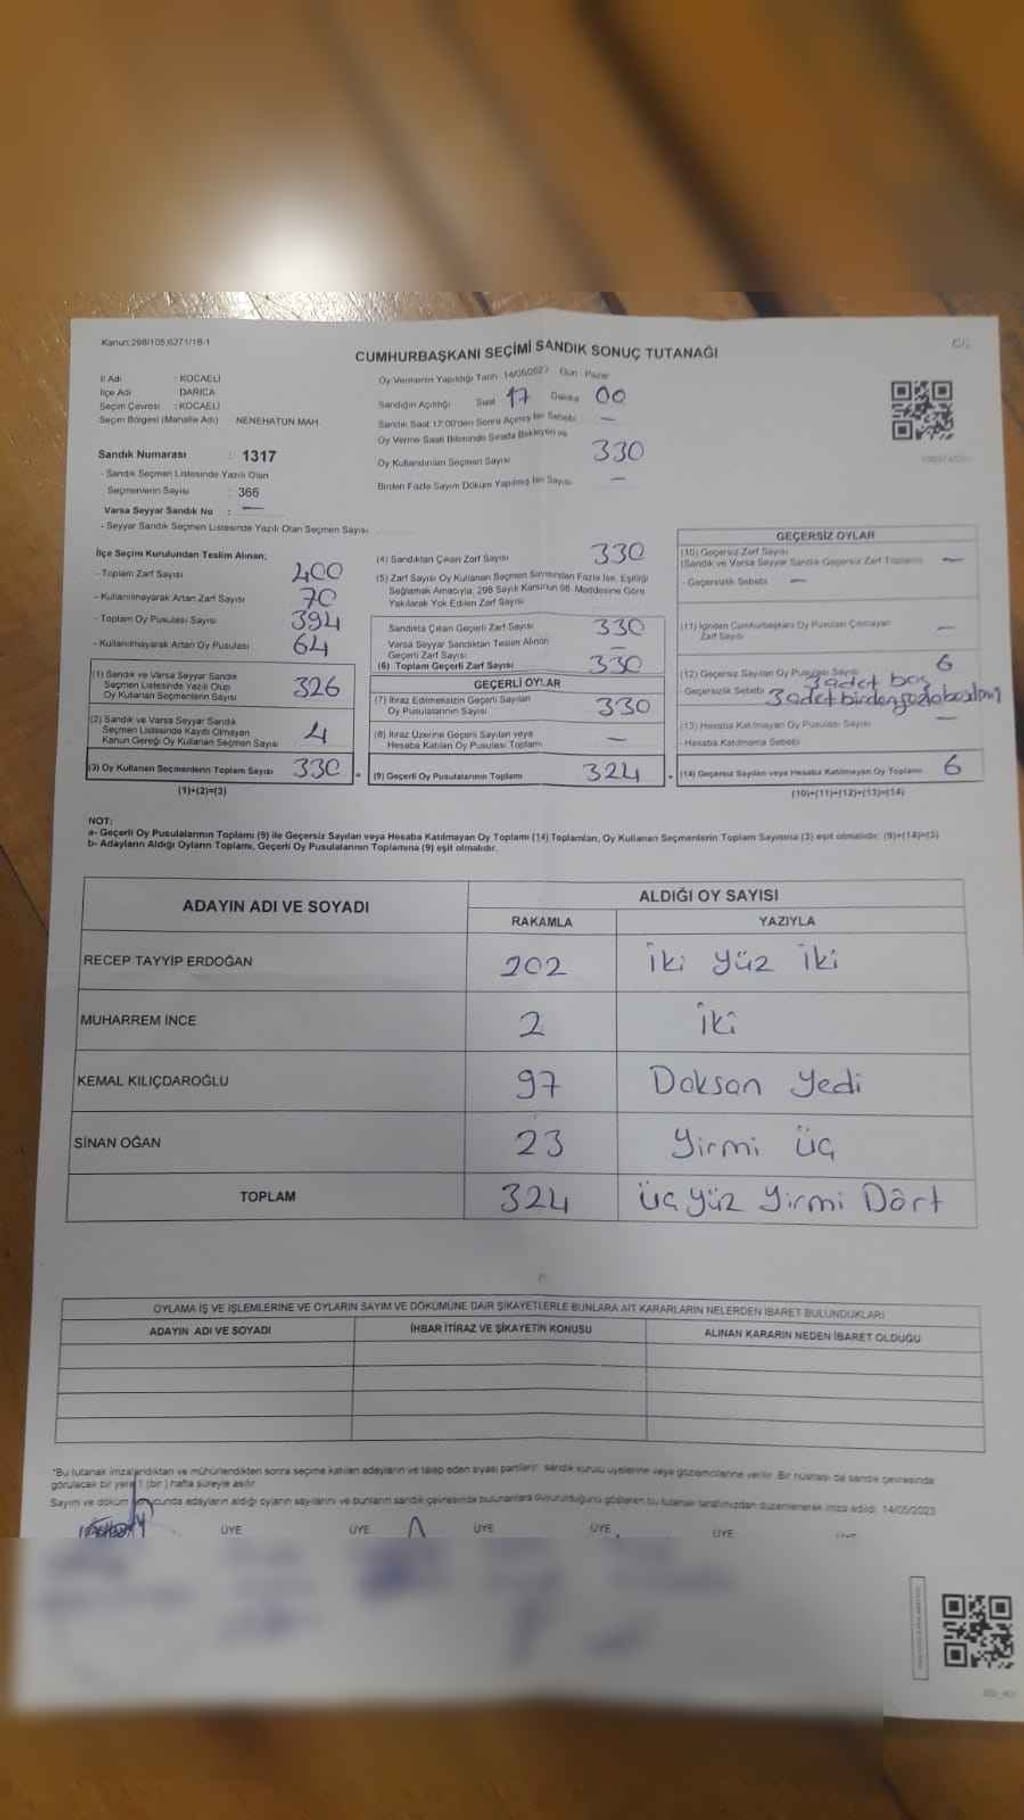 Kanun:298/105,6271/18-1
CUMHURBAŞKANI SEÇİMİ SANDIK SONUÇ TUTANAĞI
İl Adı : KOCAELİ
İlçe Adı : DARICA
Seçim Çevresi : KOCAELİ
Seçim Bölgesi (Mahalle Adı) NENEHATUN MAH.
Sandık Numarası : 1317
- Sandık Seçmen Listesinde Yazılı Olan
Seçmenlerin Sayısı : 366
Varsa Seyyar Sandık No : —
- Seyyar Sandık Seçmen Listesinde Yazılı Olan Seçmen Sayısı
Oy Vermenin Yapıldığı Tarih 14/05/2023 Gün: Pazar
Sandığın Açıldığı Saat 17 Dakika 00
Sandık Saat 17:00'den Sonra Açılmış İse Sebebi —
Oy Verme Saati Bitiminde Sırada Bekleyen
Oy Kullandırılan Seçmen Sayısı 330
Birden Fazla Sayım Döküm Yapılmış İse Sayısı —
İlçe Seçim Kurulundan Teslim Alınan;
- Toplam Zarf Sayısı 400
- Kullanılmayarak Artan Zarf Sayısı 70
- Toplam Oy Pusulası Sayısı 394
- Kullanılmayarak Artan Oy Pusulası 64
(1) Sandık ve Varsa Seyyar Sandık
Seçmen Listesinde Yazılı Olup
Oy Kullanan Seçmenlerin Sayısı 326
(2) Sandık ve Varsa Seyyar Sandık
Seçmen Listesinde Kayıtlı Olmayan
Kanun Gereği Oy Kullanan Seçmen Sayısı 4
(3) Oy Kullanan Seçmenlerin Toplam Sayısı 330
(1)+(2)=(3)
(4) Sandıktan Çıkan Zarf Sayısı 330
(5) Zarf Sayısı Oy Kullanan Seçmen Sayısından Fazla İse, Eşitliği
Sağlamak Amacıyla, 298 Sayılı Kanunun 98. Maddesine Göre
Yakılarak Yok Edilen Zarf Sayısı
Sandıkta Çıkan Geçerli Zarf Sayısı 330
Varsa Seyyar Sandıktan Teslim Alınan
Geçerli Zarf Sayısı —
(6) Toplam Geçerli Zarf Sayısı 330
GEÇERLİ OYLAR
(7) İtiraz Edilmeksizin Geçerli Sayılan
Oy Pusulalarının Sayısı 330
(8) İtiraz Üzerine Geçerli Sayılan veya
Hesaba Katılan Oy Pusulası Toplamı —
(9) Geçerli Oy Pusulalarının Toplamı 324
GEÇERSİZ OYLAR
(10) Geçersiz Zarf Sayısı
(Sandık ve Varsa Seyyar Sandık Geçersiz Zarf Toplamı) —
- Geçersizlik Sebebi —
(11) İçinden Cumhurbaşkanı Oy Pusulası Çıkmayan
Zarf Sayısı —
(12) Geçersiz Sayılan Oy Pusulası Sayısı 6
Geçersizlik Sebebi 3 adet boş
3 adet birden fazla basılmış
(13) Hesaba Katılmayan Oy Pusulası Sayısı —
- Hesaba Katılmama Sebebi
(14) Geçersiz Sayılan veya Hesaba Katılmayan Oy Toplamı 6
(10)+(11)+(12)+(13)=(14)
NOT:
a- Geçerli Oy Pusulalarının Toplamı (9) ile Geçersiz Sayılan veya Hesaba Katılmayan Oy Toplamı (14) Toplamları, Oy Kullanan Seçmenlerin Toplam Sayısına (3) eşit olmalıdır. (9)+(14)=(3)
b- Adayların Aldığı Oyların Toplamı, Geçerli Oy Pusulalarının Toplamına (9) eşit olmalıdır.
ADAYIN ADI VE SOYADI
ALDIĞI OY SAYISI
RAKAMLA YAZIYLA
RECEP TAYYİP ERDOĞAN 202 İki yüz iki
MUHARREM İNCE 2 İki
KEMAL KILIÇDAROĞLU 97 Doksan Yedi
SİNAN OĞAN 23 Yirmi üç
TOPLAM 324 Üç yüz Yirmi Dört
OYLAMA İŞ VE İŞLEMLERİNE VE OYLARIN SAYIM VE DÖKÜMÜNE DAİR ŞİKAYETLERLE BUNLARA AİT KARARLARIN NELERDEN İBARET BULUNDUKLARI
ADAYIN ADI VE SOYADI İHBAR İTİRAZ VE ŞİKAYETİN KONUSU ALINAN KARARIN NEDEN İBARET OLDUĞU
*Bu tutanak imzalandıktan ve mühürlendikten sonra seçime katılan adayların ve talep eden siyasi partilerin sandık kurulu üyelerine veya gözlemcilerine verilir. Bir nüshası da sandık çevresinde
görülecek bir yere 1 (bir) hafta süreyle asılır.
Sayım ve döküm sonucunda adayların aldığı oyların sayılarını ve bunların sandık çevresinde bulunanlara duyurulduğunu gösteren bu tutanak tarafımızdan düzenlenerek imza edildi. 14/05/2023
ÜYE ÜYE ÜYE ÜYE ÜYE